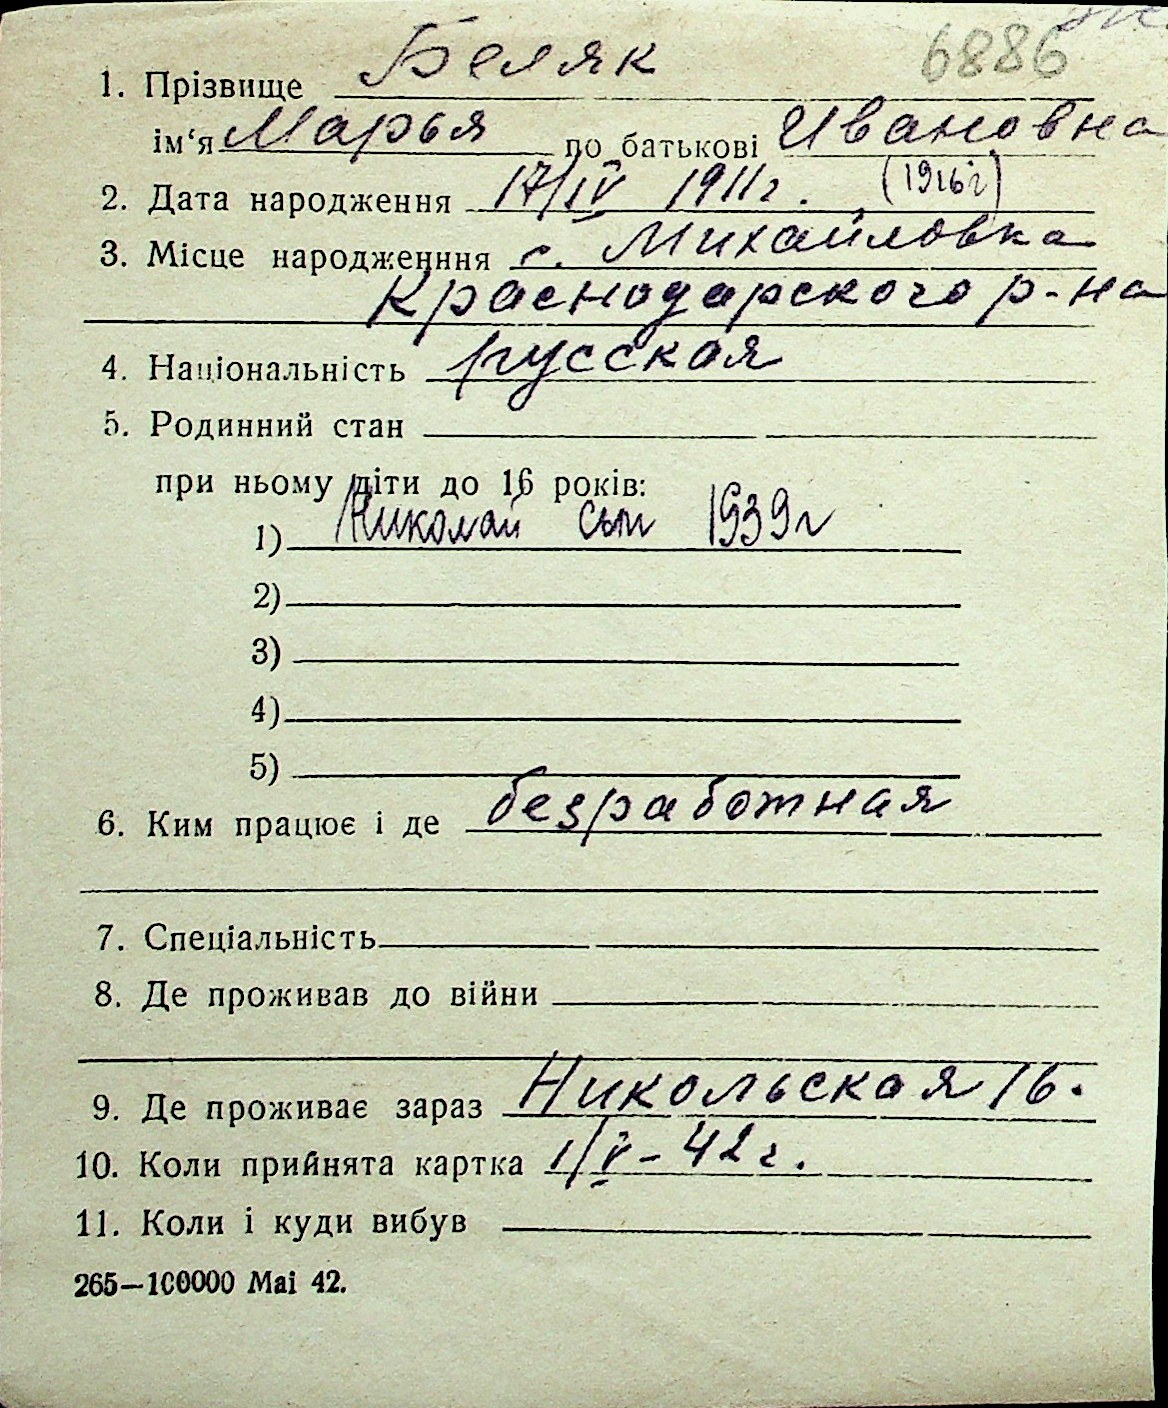 6886
1. Прізвище Беляк
ім‘я Марья по батькові Ивановна
2. Дата народження 17/IV 1911г. (1916г)
3. Місце народженння с. Михайловка
Краснодарского р-на
4. Національність русская
5. Родинний стан
при ньому діти до 16 років:
1) Николай сын 1939г
2)
3)
4)
5)
6. Ким працює і де безработная
7. Спеціальність
8. Де проживав до війни
9. Де проживає зараз Никольская 16.
10. Коли прийнята картка 1/V-42г.
11. Коли і куди вибув
265—100000 Mai 42.